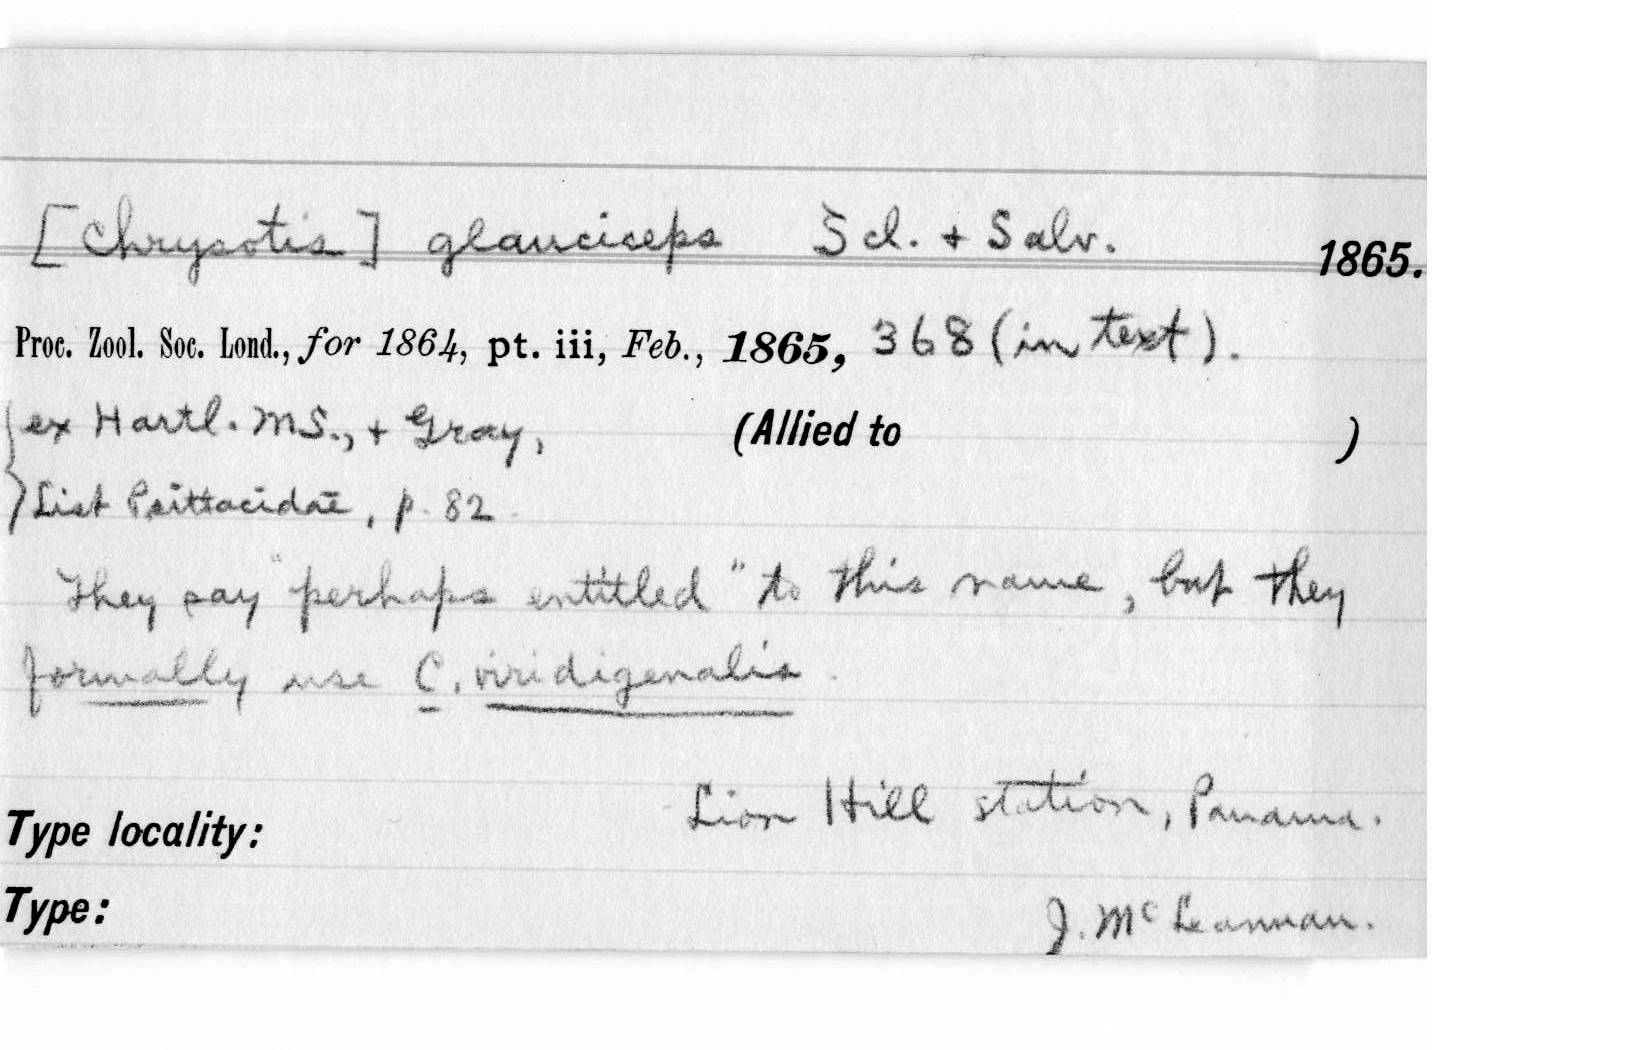 [Chrysotis] glauciceps Scl. + Salv. 1865.
Proc. Zool. Soc. Lond., for 1864, pt. iii, Feb., 1865, 368 (in text).
{ex Hartl. MS., + Gray, (Allied to )
}List Psittacidae, p. 82.
They say "perhaps entitled" to this name, but they
formally use C. viridigenalis.
Type locality: Lion Hill station, Panama.
Type: J. McLeannan.